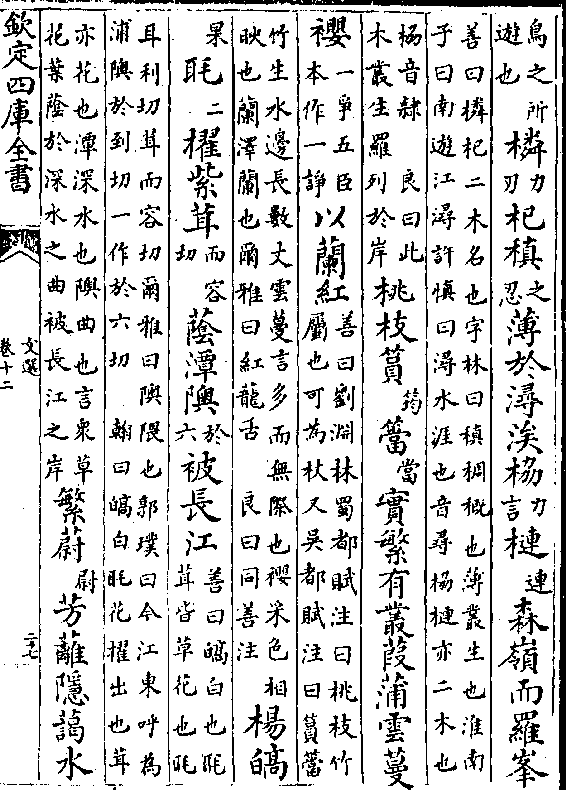 鳥之所
遊也
橉力刃杞稹之忍薄於潯涘栛力言槤連森嶺而羅峯
善曰橉杞二木名也字林曰稹稠穊也薄叢生也淮南
子曰南遊江潯許慎曰潯水涯也音尋栛槤亦二木也
栛音隸 良曰此
木叢生羅列於岸
桃枝篔筠簹當實繁有叢葭蒲雲蔓
䙬一爭五臣本作一諍以蘭紅
善曰劉淵林蜀都賦注曰桃枝竹
屬也可為杖又吳都賦注曰篔簹
竹生水邊長數丈雲蔓言多而無際也䙬采色相
映也蘭澤蘭也爾雅曰紅龍舌 良曰同善注
楊皜
果毦二擢紫茸而容切蔭潭隩於六被長江
善曰皜白也毦
茸皆草花也毦
耳利切茸而容切爾雅曰隩隈也郭璞曰今江東呼為
浦隩於到切一作於六切 翰曰皜白毦花擢出也茸
亦花也潭深水也隩曲也言衆草
花葉蔭於深水之曲被長江之岸
繁蔚尉芳蘺隱藹水
欽定四庫全書
文選
卷十二
二七